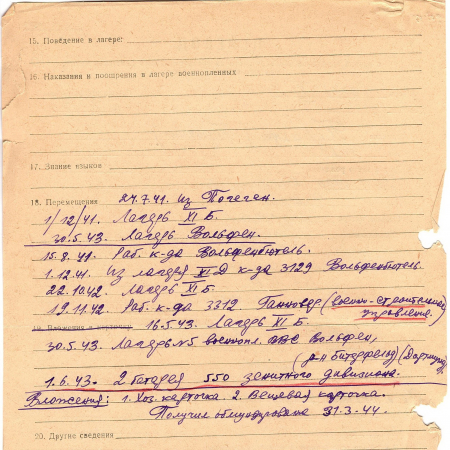 15. Поведение в лагере:
16. Наказания и поощрения в лагере военнопленных
17. Знание языков
18. Перемещения 24.7.41. из Погеген.
1/12/41. Лагерь XI Б.
30.5.43. Лагерь Вольфен.
15.8.41. Раб. к-да Вольфенбютель.
1.12.41. Из лагеря XI Д к-да 3129 Вольфенбютель.
22.10.42. Лагерь XI Б.
19.11.42. Раб. к-да 3312 Ганновер (военн-строительное управление.
16.5.43. Лагерь XI Б.
30.5.43. Лагерь №5 военнопл. ВВС Вольфен,
(р-н Биттерфельд)
1.6.43. 2 батарея 550 зенитного дивизиона.
Вложения: 1. Хоз. карточка. 2. Вещевая карточка.
Получил обмундирование 31.3.44.
20. Другие сведения